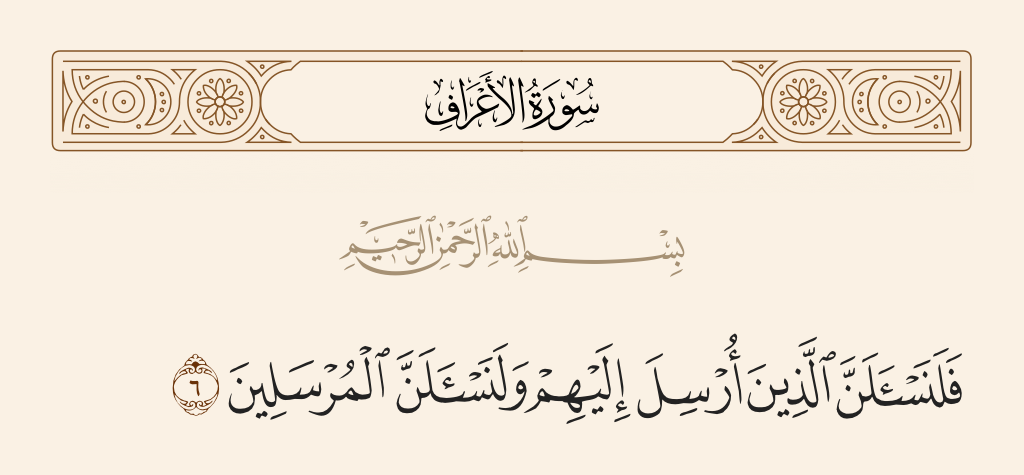 سُورَةُ الأَعْرَافِ
بِسْمِ ٱللَّهِ ٱلرَّحْمَٰنِ ٱلرَّحِيمِ
فَلَنَسْـَٔلَنَّ ٱلَّذِينَ أُرْسِلَ إِلَيْهِمْ وَلَنَسْـَٔلَنَّ ٱلْمُرْسَلِينَ ٦